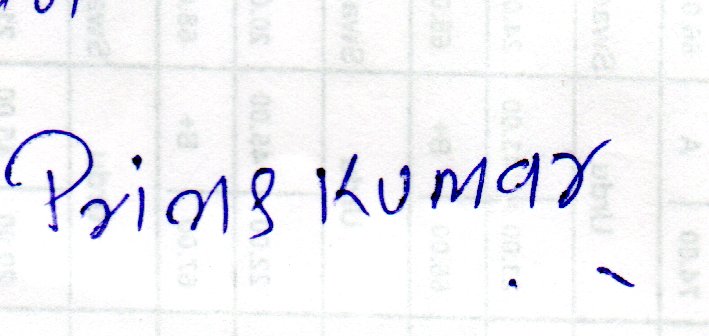 Prins Kumar